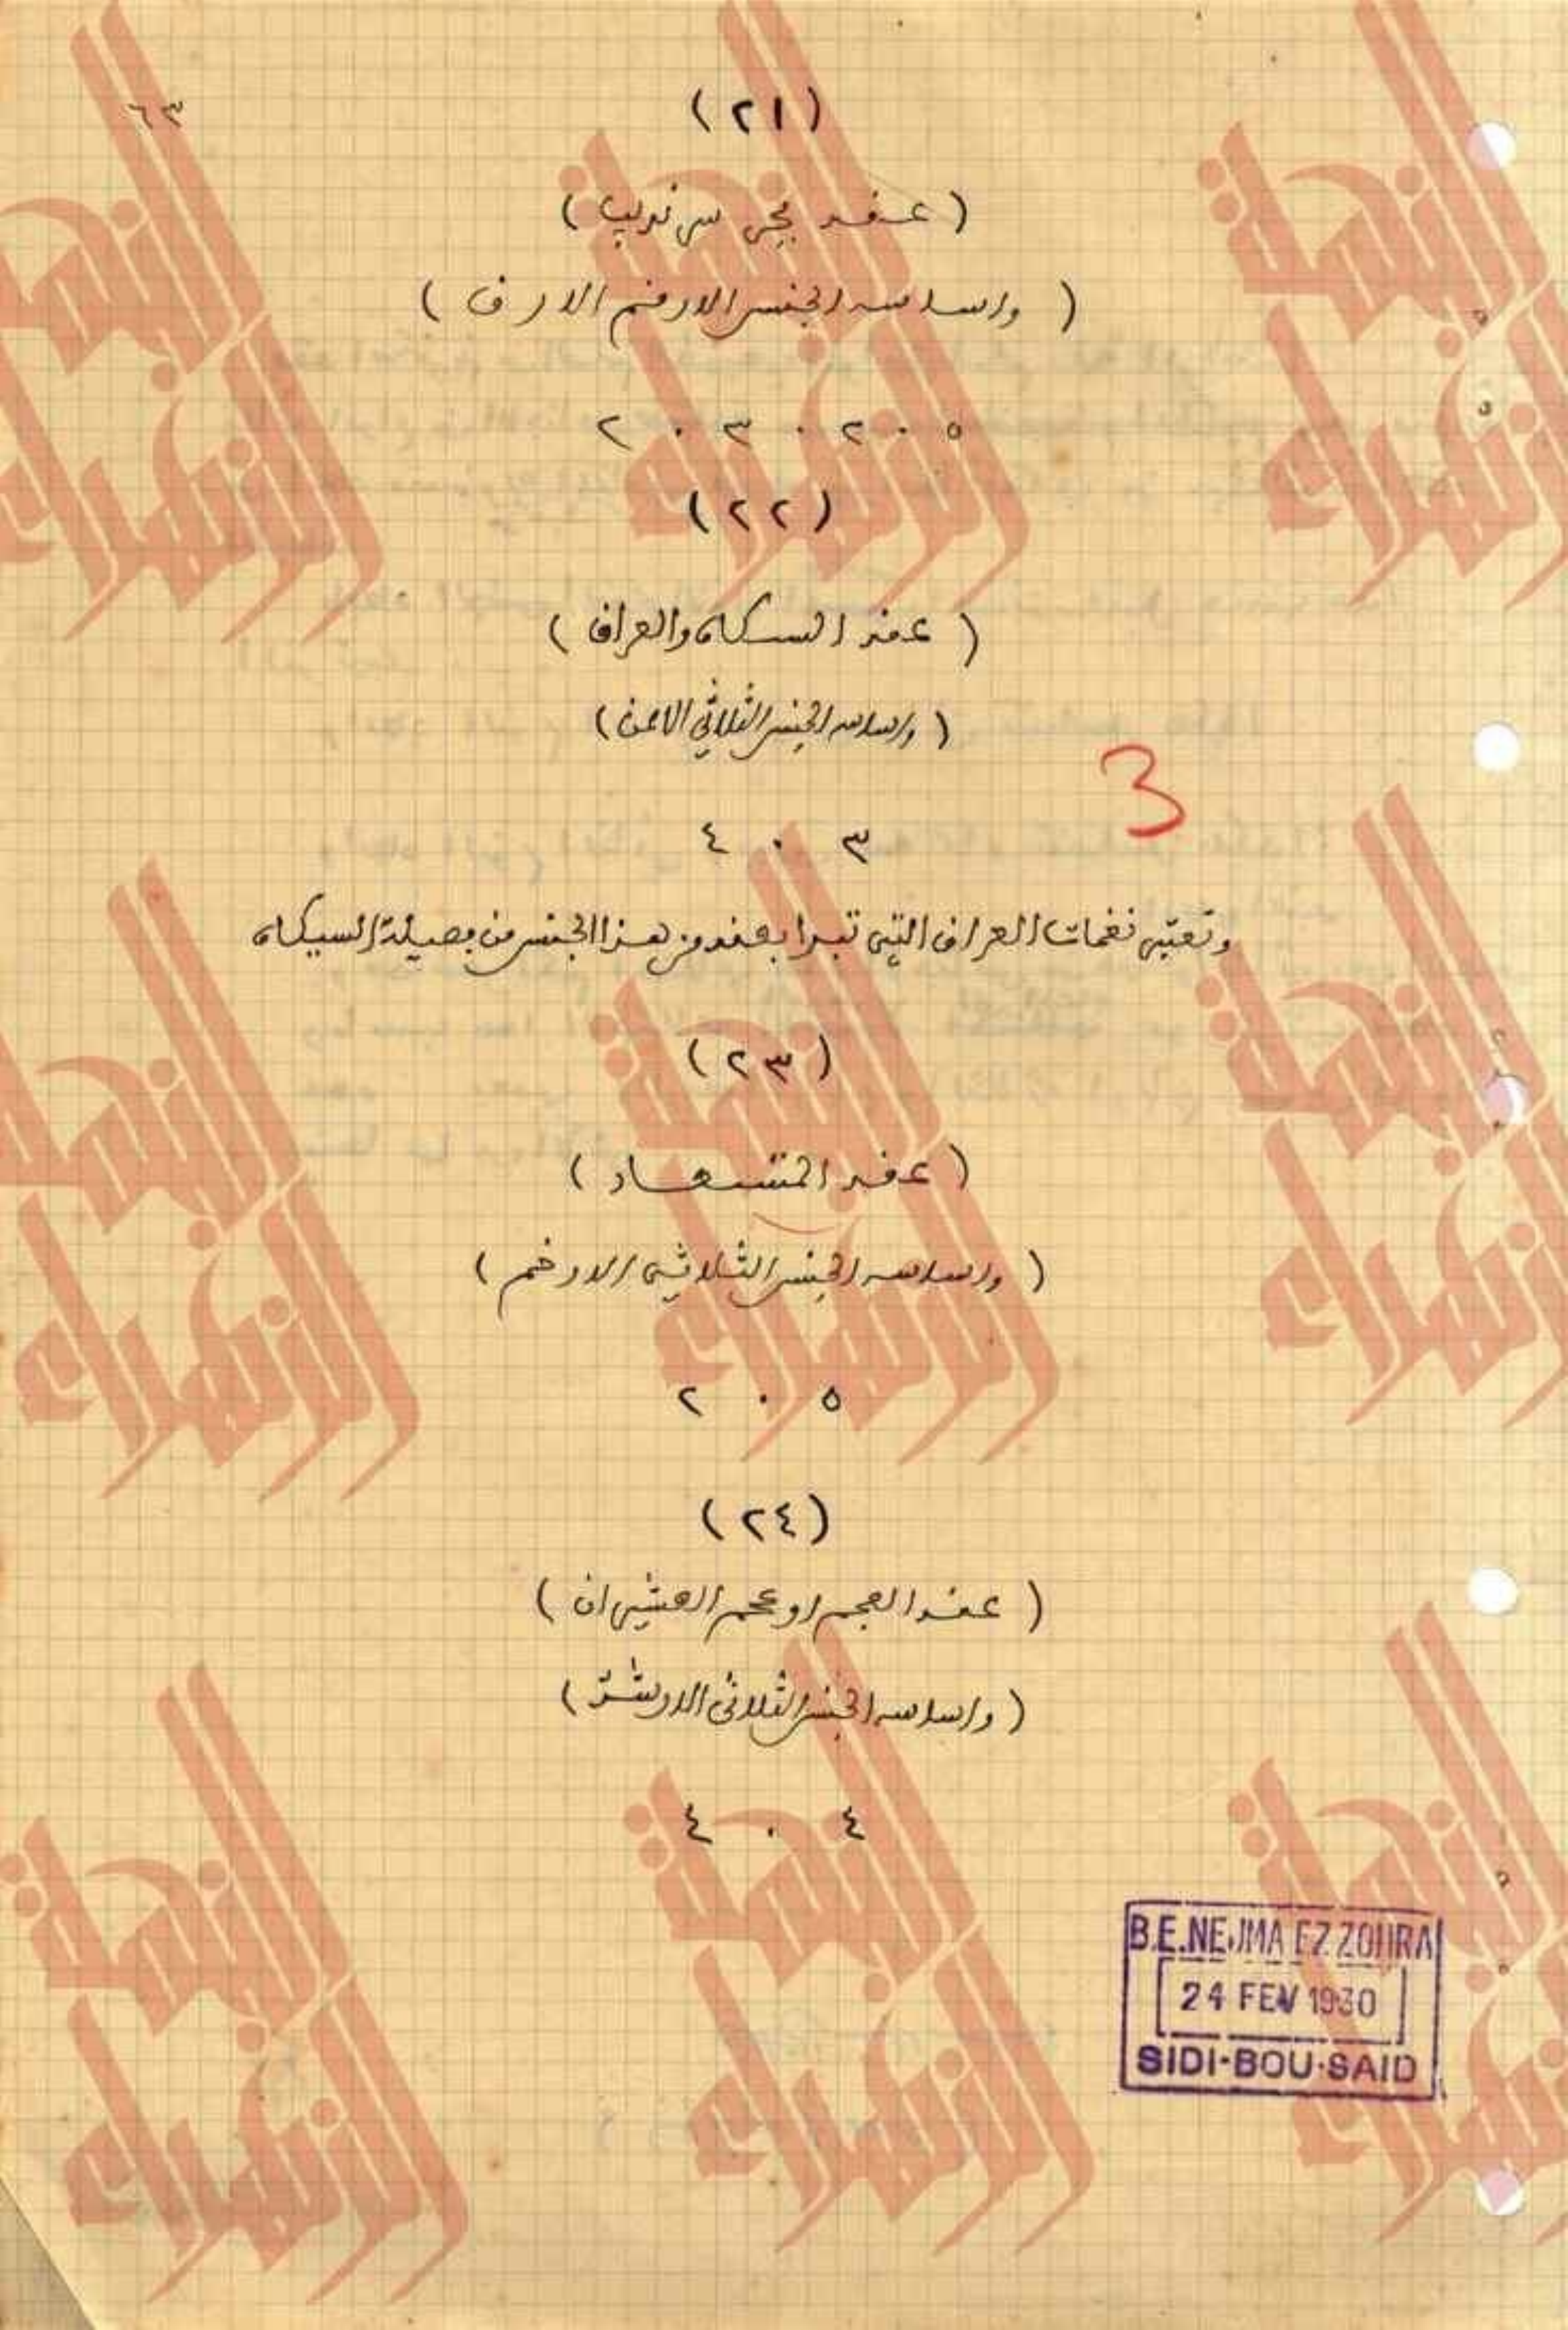 ٦٣
(٢١)
(عقد بحر سرنديب)
(واساسه الجنس الارخم الارق)
٢ . ٣ . ٢ . ٥
(٢٢)
(عقد السكاه والعراق)
(واساسه الجنس الثلاثي الاحن)
٤ . ٣
3
وتعتبر نغمات العراق التي تبدا بعقد من هذا الجنس من فصيلة السيكاه
(٢٣)
(عقد المستعار)
(واساسه الجنس الثلاثي الارخم)
٢ . ٥
(٢٤)
(عقد العجم او عجم العشيران)
(واساسه الجنس الثلاثي الاشد)
٤ . ٤
B.E.NEJMA EZZOHRA
24 FEV 1930
SIDI-BOU-SAID
النجمة الزهراء